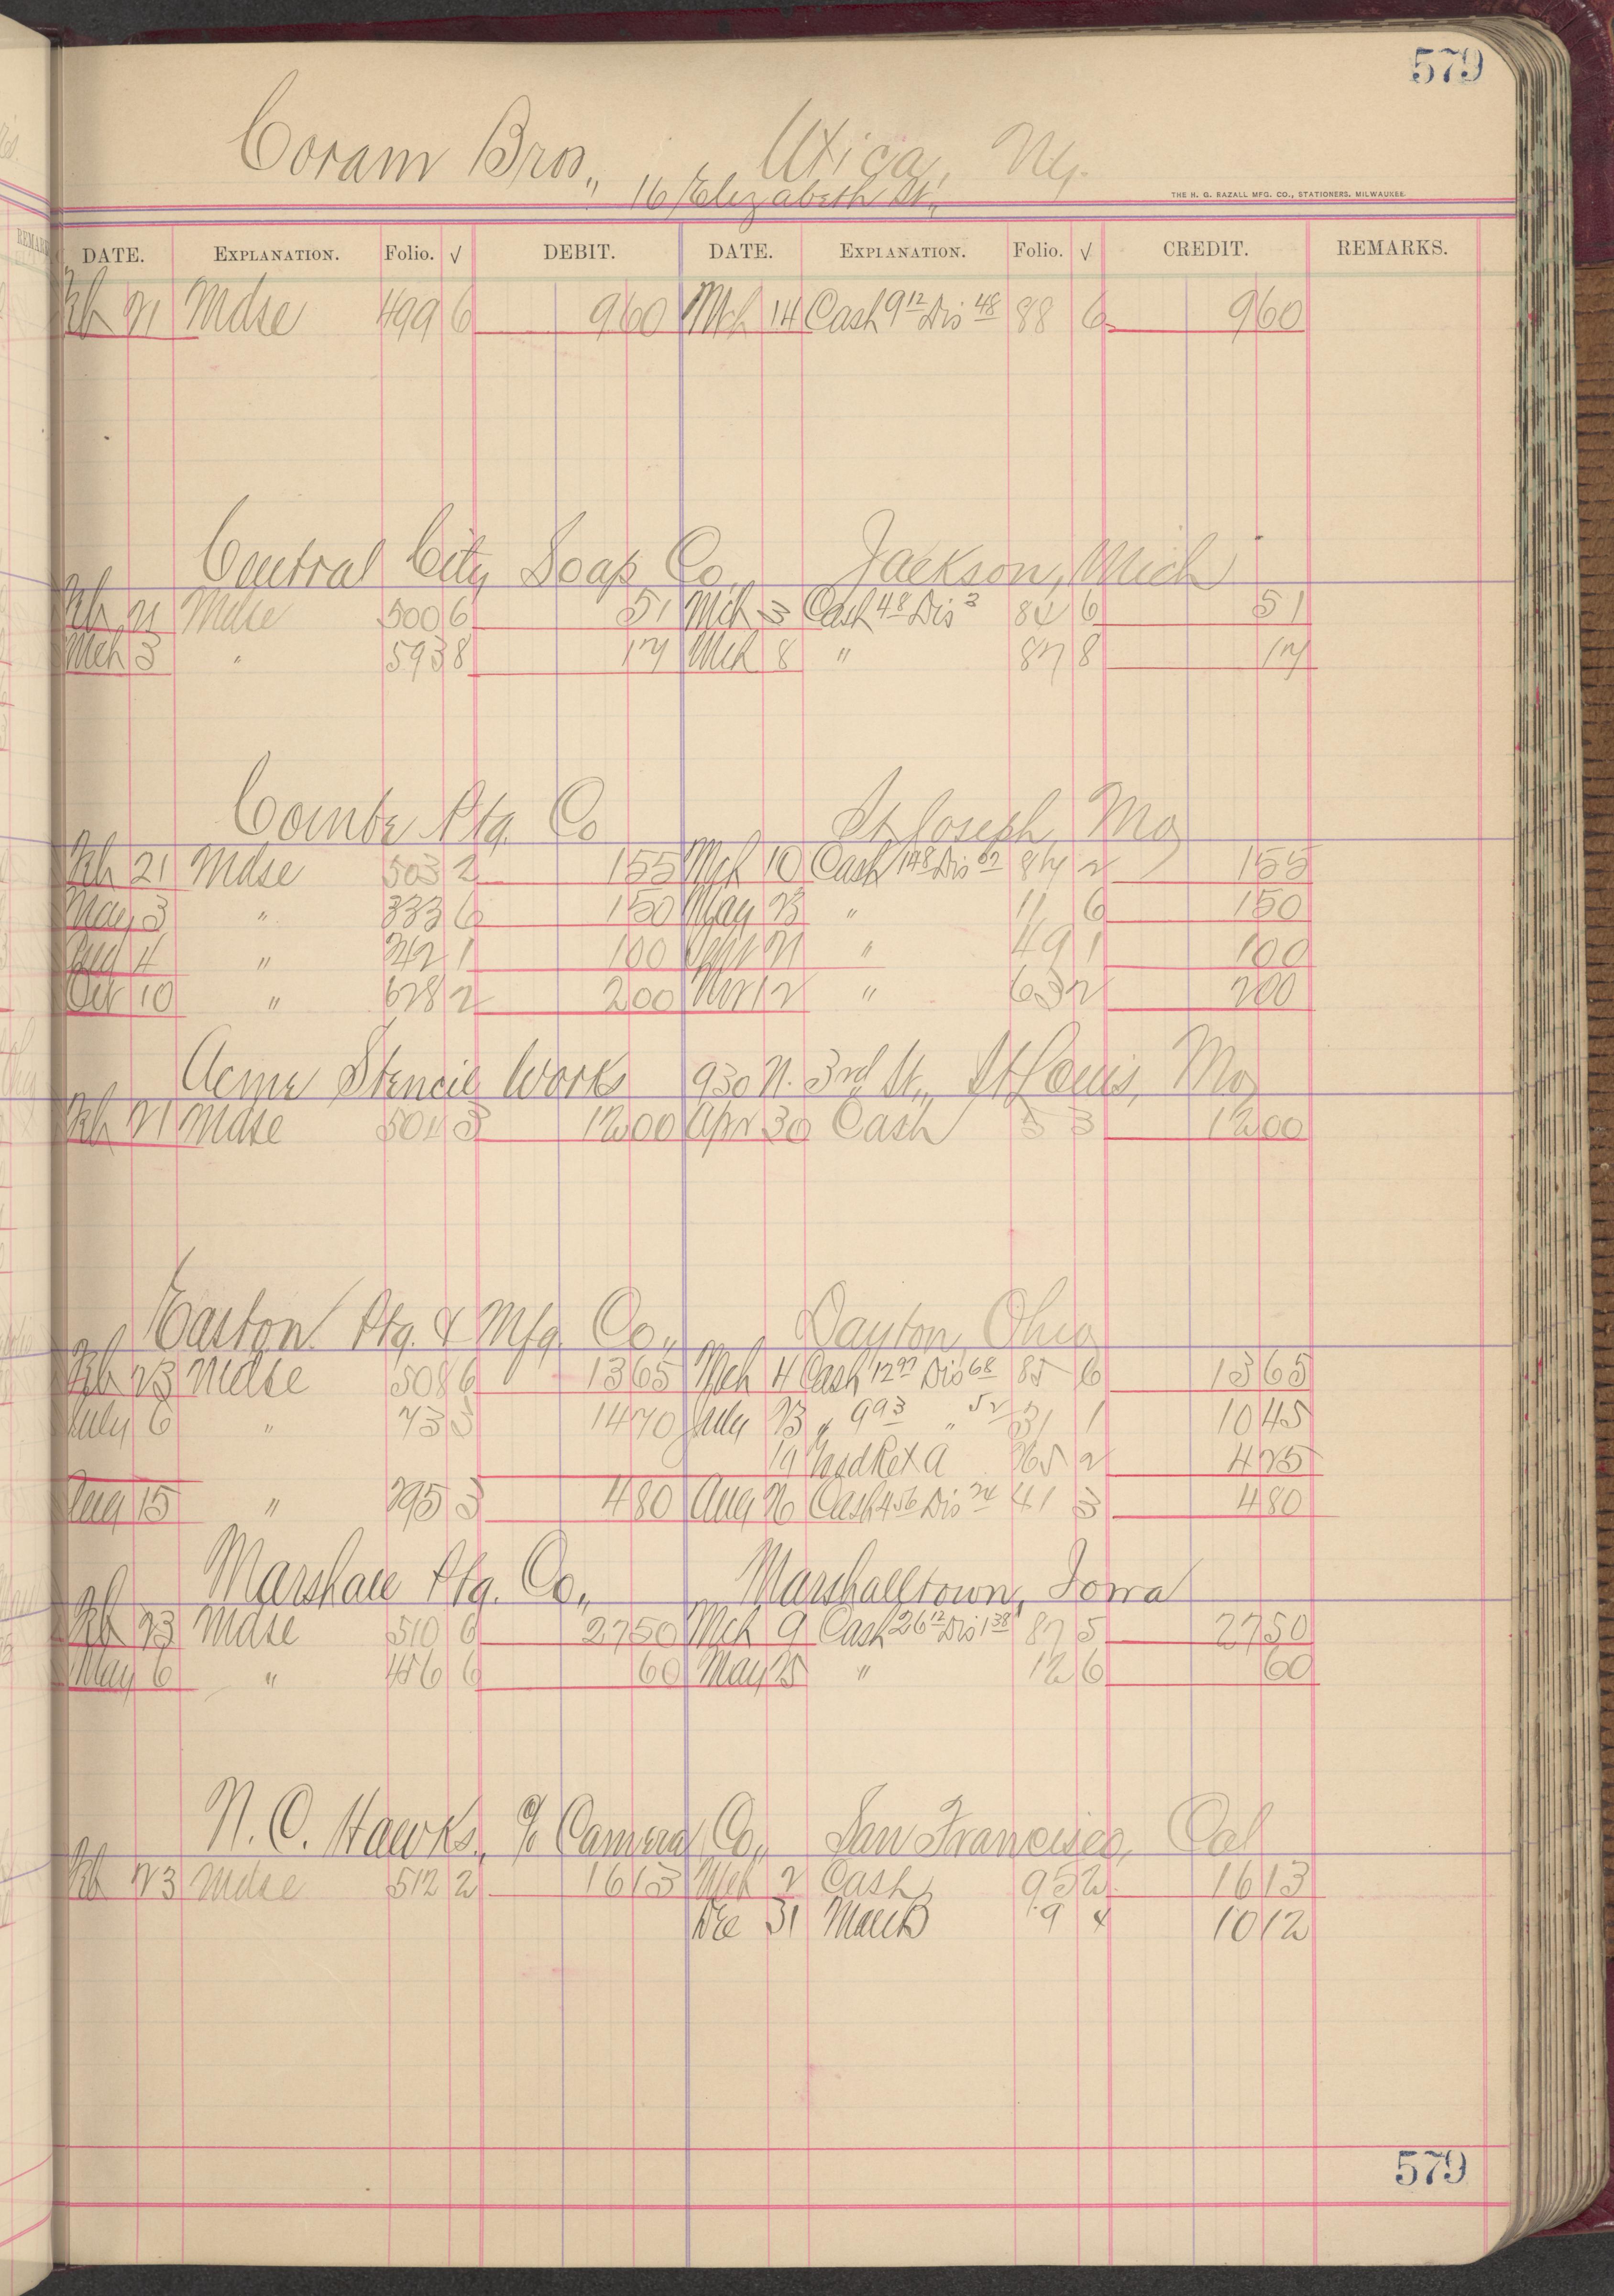 579
Coram Bros., Utica, Ny.
16 Elizabeth St.,
THE H. G. RAZALL MFG. CO., STATIONERS, MILWAUKEE.
DATE. EXPLANATION. Folio. √ DEBIT. DATE. EXPLANATION. Folio. √ CREDIT. REMARKS.
Feb 21 Mdse 499 6 9 60 Mch 14 Cash 9 12 Dis 48 88 6 9 60
Central City Soap Co., Jackson, Mich
Feb 21 Mdse 500 6 51 Mch 3 Cash 48 Dis 3 84 6 51
Mch 3 " 593 8 17 Mch 8 " 87 8 17
Combe Ptg. Co St Joseph, Mo
Feb 21 Mdse 503 2 1 55 Mch 10 Cash 148 Dis 07 87 2 1 55
May 3 " 333 6 1 50 May 23 " 11 6 1 50
Aug 4 " 242 1 1 00 21 " 49 1 1 00
Oct 10 " 628 2 2 00 Nov 12 " 63 2 2 00
Acme Stencil Works 930 N. 3rd St., St Louis, Mo
Feb 21 Mdse 504 3 12 00 Apr 30 Cash 3 3 12 00
Easton Ptg. & Mfg. Co., Dayton, Ohio
Feb 23 Mdse 508 6 13 65 Mch 4 Cash 12 97 Dis 68 85 6 13 65
July 6 " 73 3 14 70 July 23 " 9 93 " 52 31 1 10 45
19 265 2 4 25
Aug 15 " 295 3 4 80 Aug 26 Cash 4 56 Dis 24 41 3 4 80
Marshall Ptg. Co., Marshalltown, Iowa
Feb 23 Mdse 510 6 27 50 Mch 9 Cash 26 12 Dis 1 38 87 5 27 50
May 6 " 456 6 60 May 25 " 12 6 60
N. C. Hawks, c/o Camera Co., San Francisco, Cal
Feb 23 Mdse 512 2 16 13 Mch 2 Cash 95 2 16 13
Dec 31 19 4 10 12
579